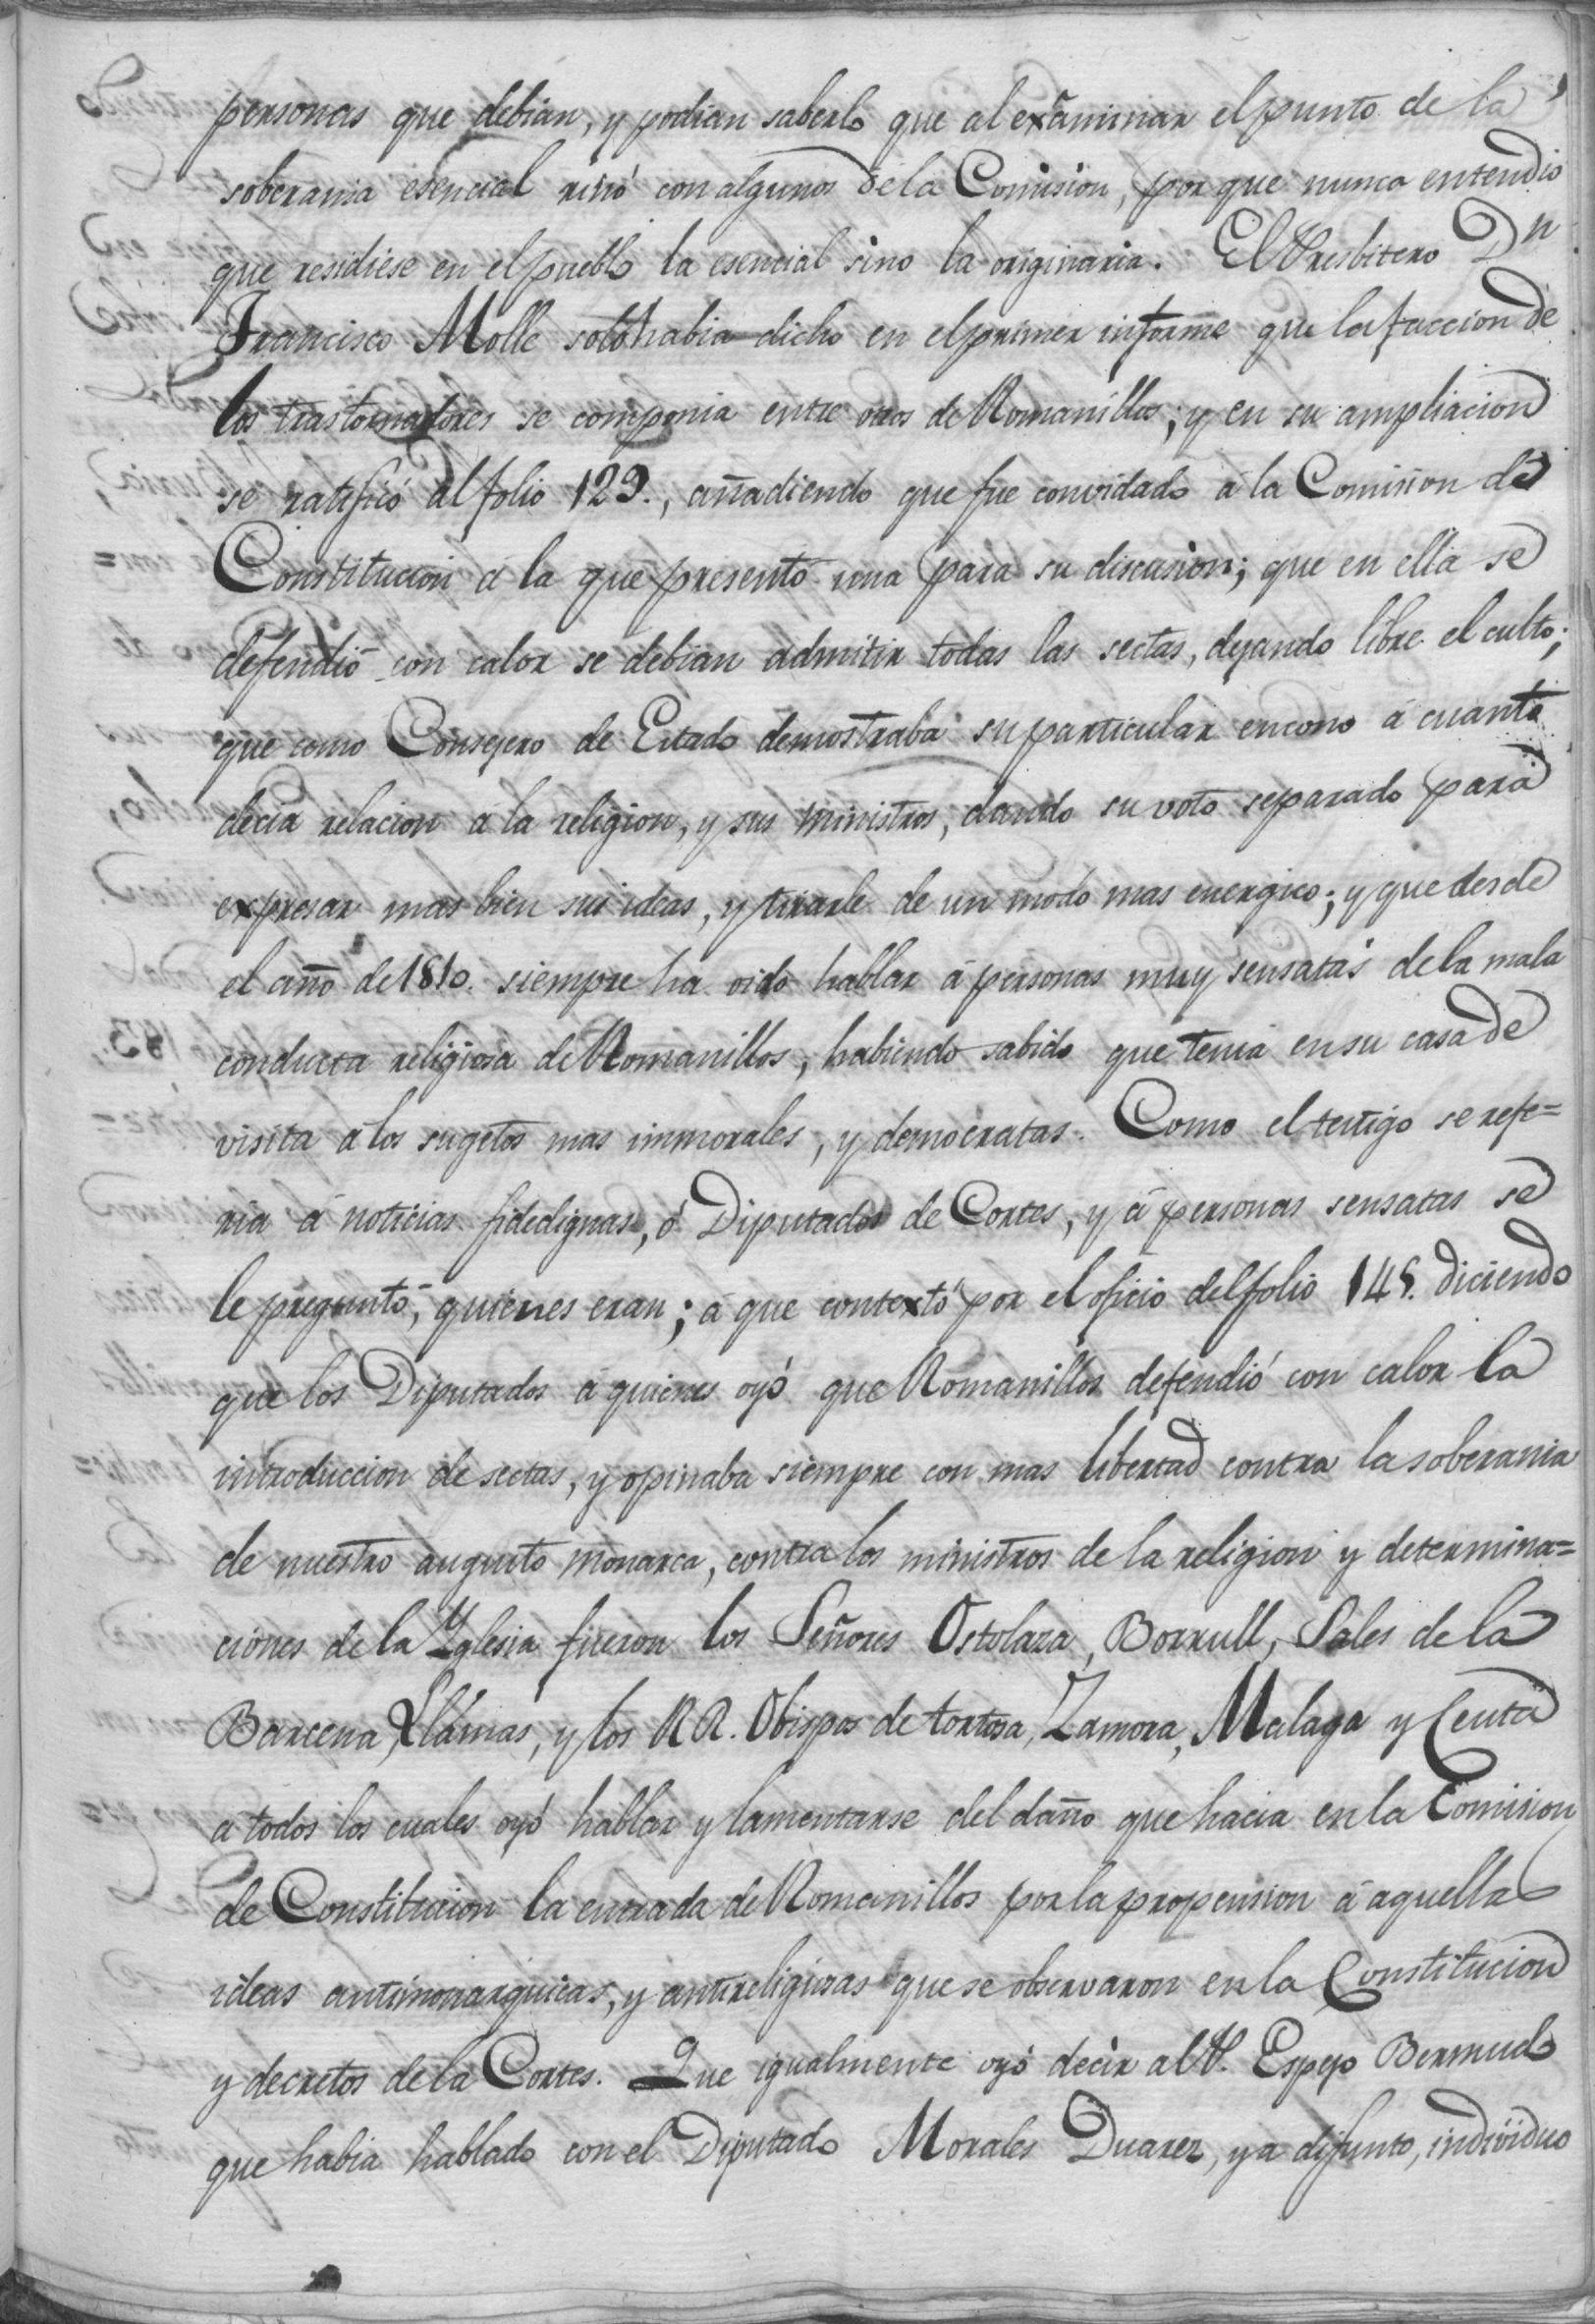 personas que debian, y podian saberlo que al examinar el punto de la
soberania esencial riñó con algunos de la Comision, por que nunca entendió
que residiese en el pueblo la esencial sino la originaria. El Presbitero Dn
Francisco Molle solo habia dicho en el primer informe que la faccion de
los trastornadores se componia entre otros de Romanillos; y en su ampliacion
se ratificó al folio 129., añadiendo que fue convidado á la Comision de
Constitucion á la que presentó una para su discusion; que en ella se
defendió con calor se debian admitir todas las sectas, dejando libre el culto;
que como Consejero de Estado demostraba su particular encono á cuanto
decia relacion á la religion, y sus ministros, dando su voto separado para
expresar mas bien sus ideas, y tirarle de un modo mas energico; y que desde
el año de 1810. siempre ha oido hablar á personas muy sensatas de la mala
conducta religiosa de Romanillos, habiendo sabido que tenia en su casa de
visita á los sugetos mas immorales, y democratas. Como el testigo se refe=
ria á noticias fidedignas, ó Diputados de Cortes, y á personas sensatas se
le preguntó, quienes eran; á que contextó por el oficio del folio 148. diciendo
que los Diputados á quienes oyó que Romanillos defendió con calor la
introduccion de sectas, y opinaba siempre con mas libertad contra la soberania
de nuestro augusto monarca, contra los ministros de la religion y determina=
ciones de la Yglesia fueron los Señores Ostolaza, Borrull, Sales de la
Barcena, Llamas, y los RR. Obispos de tortosa, Zamora, Malaga y Ceuta
a todos los cuales oyó hablar y lamentarse del daño que hacia en la Comision
de Constitucion la entrada de Romanillos por la propension á aquellas
ideas antimonarquicas, y antireligiosas que se observaron en la Constitucion
y decretos de la Cortes. Que igualmente oyó decir al P. Espejo Bermudo
que habia hablado con el Diputado Morales Duarez, ya difunto, indivïduo